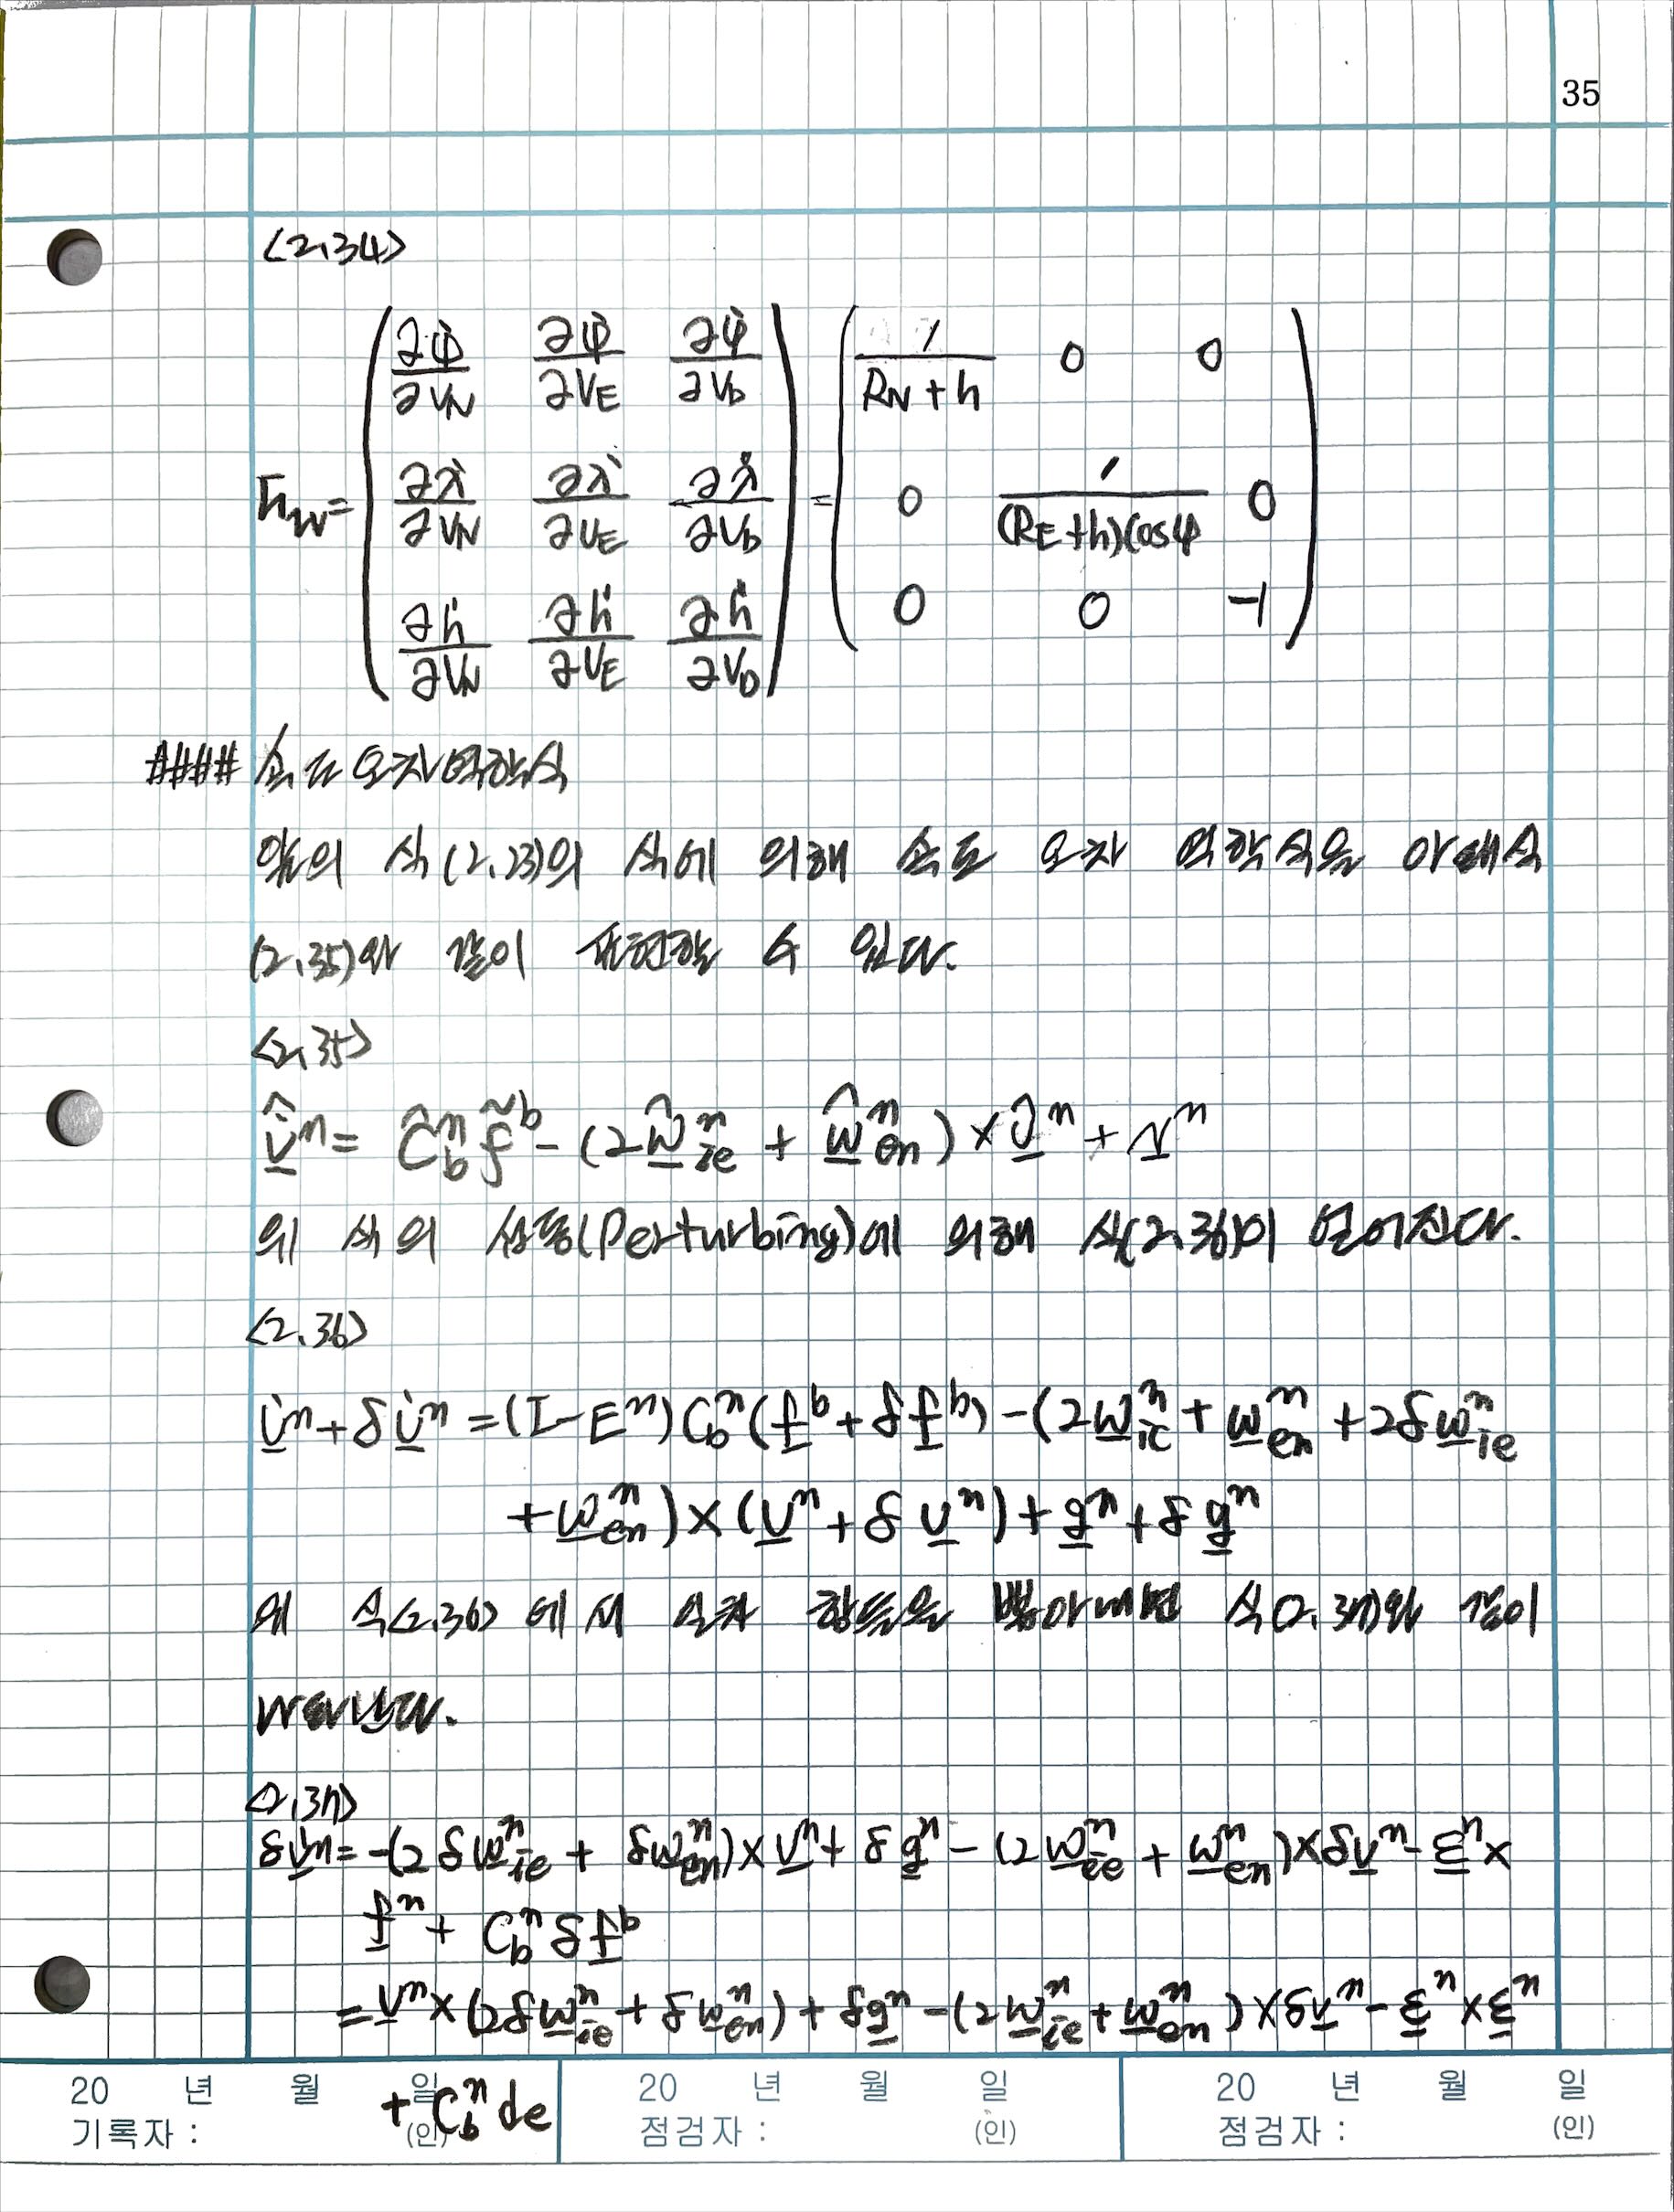 35
<2.34>
F_{rv} = \begin{pmatrix} \frac{\partial \dot{\varphi}}{\partial V_N} & \frac{\partial \dot{\varphi}}{\partial V_E} & \frac{\partial \dot{\varphi}}{\partial V_D} \\ \frac{\partial \dot{\lambda}}{\partial V_N} & \frac{\partial \dot{\lambda}}{\partial V_E} & \frac{\partial \dot{\lambda}}{\partial V_D} \\ \frac{\partial \dot{h}}{\partial V_N} & \frac{\partial \dot{h}}{\partial V_E} & \frac{\partial \dot{h}}{\partial V_D} \end{pmatrix} = \begin{pmatrix} \frac{1}{R_N + h} & 0 & 0 \\ 0 & \frac{1}{(R_E + h) \cos\varphi} & 0 \\ 0 & 0 & -1 \end{pmatrix}
#### 속도 오차 역학식
앞의 식(2.23)의 식에 의해 속도 오차 역학식을 아래식
(2.35)와 같이 표현할 수 있다.
<2.35>
\hat{\dot{\underline{v}}}^n = \hat{C}_b^n \tilde{f}^b - (2\hat{\underline{w}}_{ie}^n + \hat{\underline{w}}_{en}^n) × \hat{\underline{v}}^n + \underline{r}^n
위 식의 섭동(Perturbing)에 의해 식(2.36)이 얻어진다.
<2.36>
\dot{\underline{v}}^n + δ\dot{\underline{v}}^n = (I - E^n) C_b^n (\underline{f}^b + δ\underline{f}^b) - (2\underline{w}_{ie}^n + \underline{w}_{en}^n + 2δ\underline{w}_{ie}^n
+ \underline{w}_{en}^n) × (\underline{v}^n + δ\underline{v}^n) + \underline{g}^n + δ\underline{g}^n
위 식<2.36>에서 오차 항들을 뽑아내면 식(2.37)와 같이
나타난다.
<2.37>
δ\underline{\dot{v}}^n = -(2δ\underline{w}_{ie}^n + δ\underline{w}_{en}^n) × \underline{v}^n + δ\underline{g}^n - (2\underline{w}_{ie}^n + \underline{w}_{en}^n) × δ\underline{v}^n - \underline{ε}^n ×
\underline{f}^n + C_b^n δ\underline{f}^b
= \underline{v}^n × (2δ\underline{w}_{ie}^n + δ\underline{w}_{en}^n) + δ\underline{g}^n - (2\underline{w}_{ie}^n + \underline{w}_{en}^n) × δ\underline{v}^n - \underline{ε}^n × \underline{ε}^n
+ C_b^n de
20 년 월 일 20 년 월 일 20 년 월 일
기록자 : (인) 점검자 : (인) 점검자 : (인)